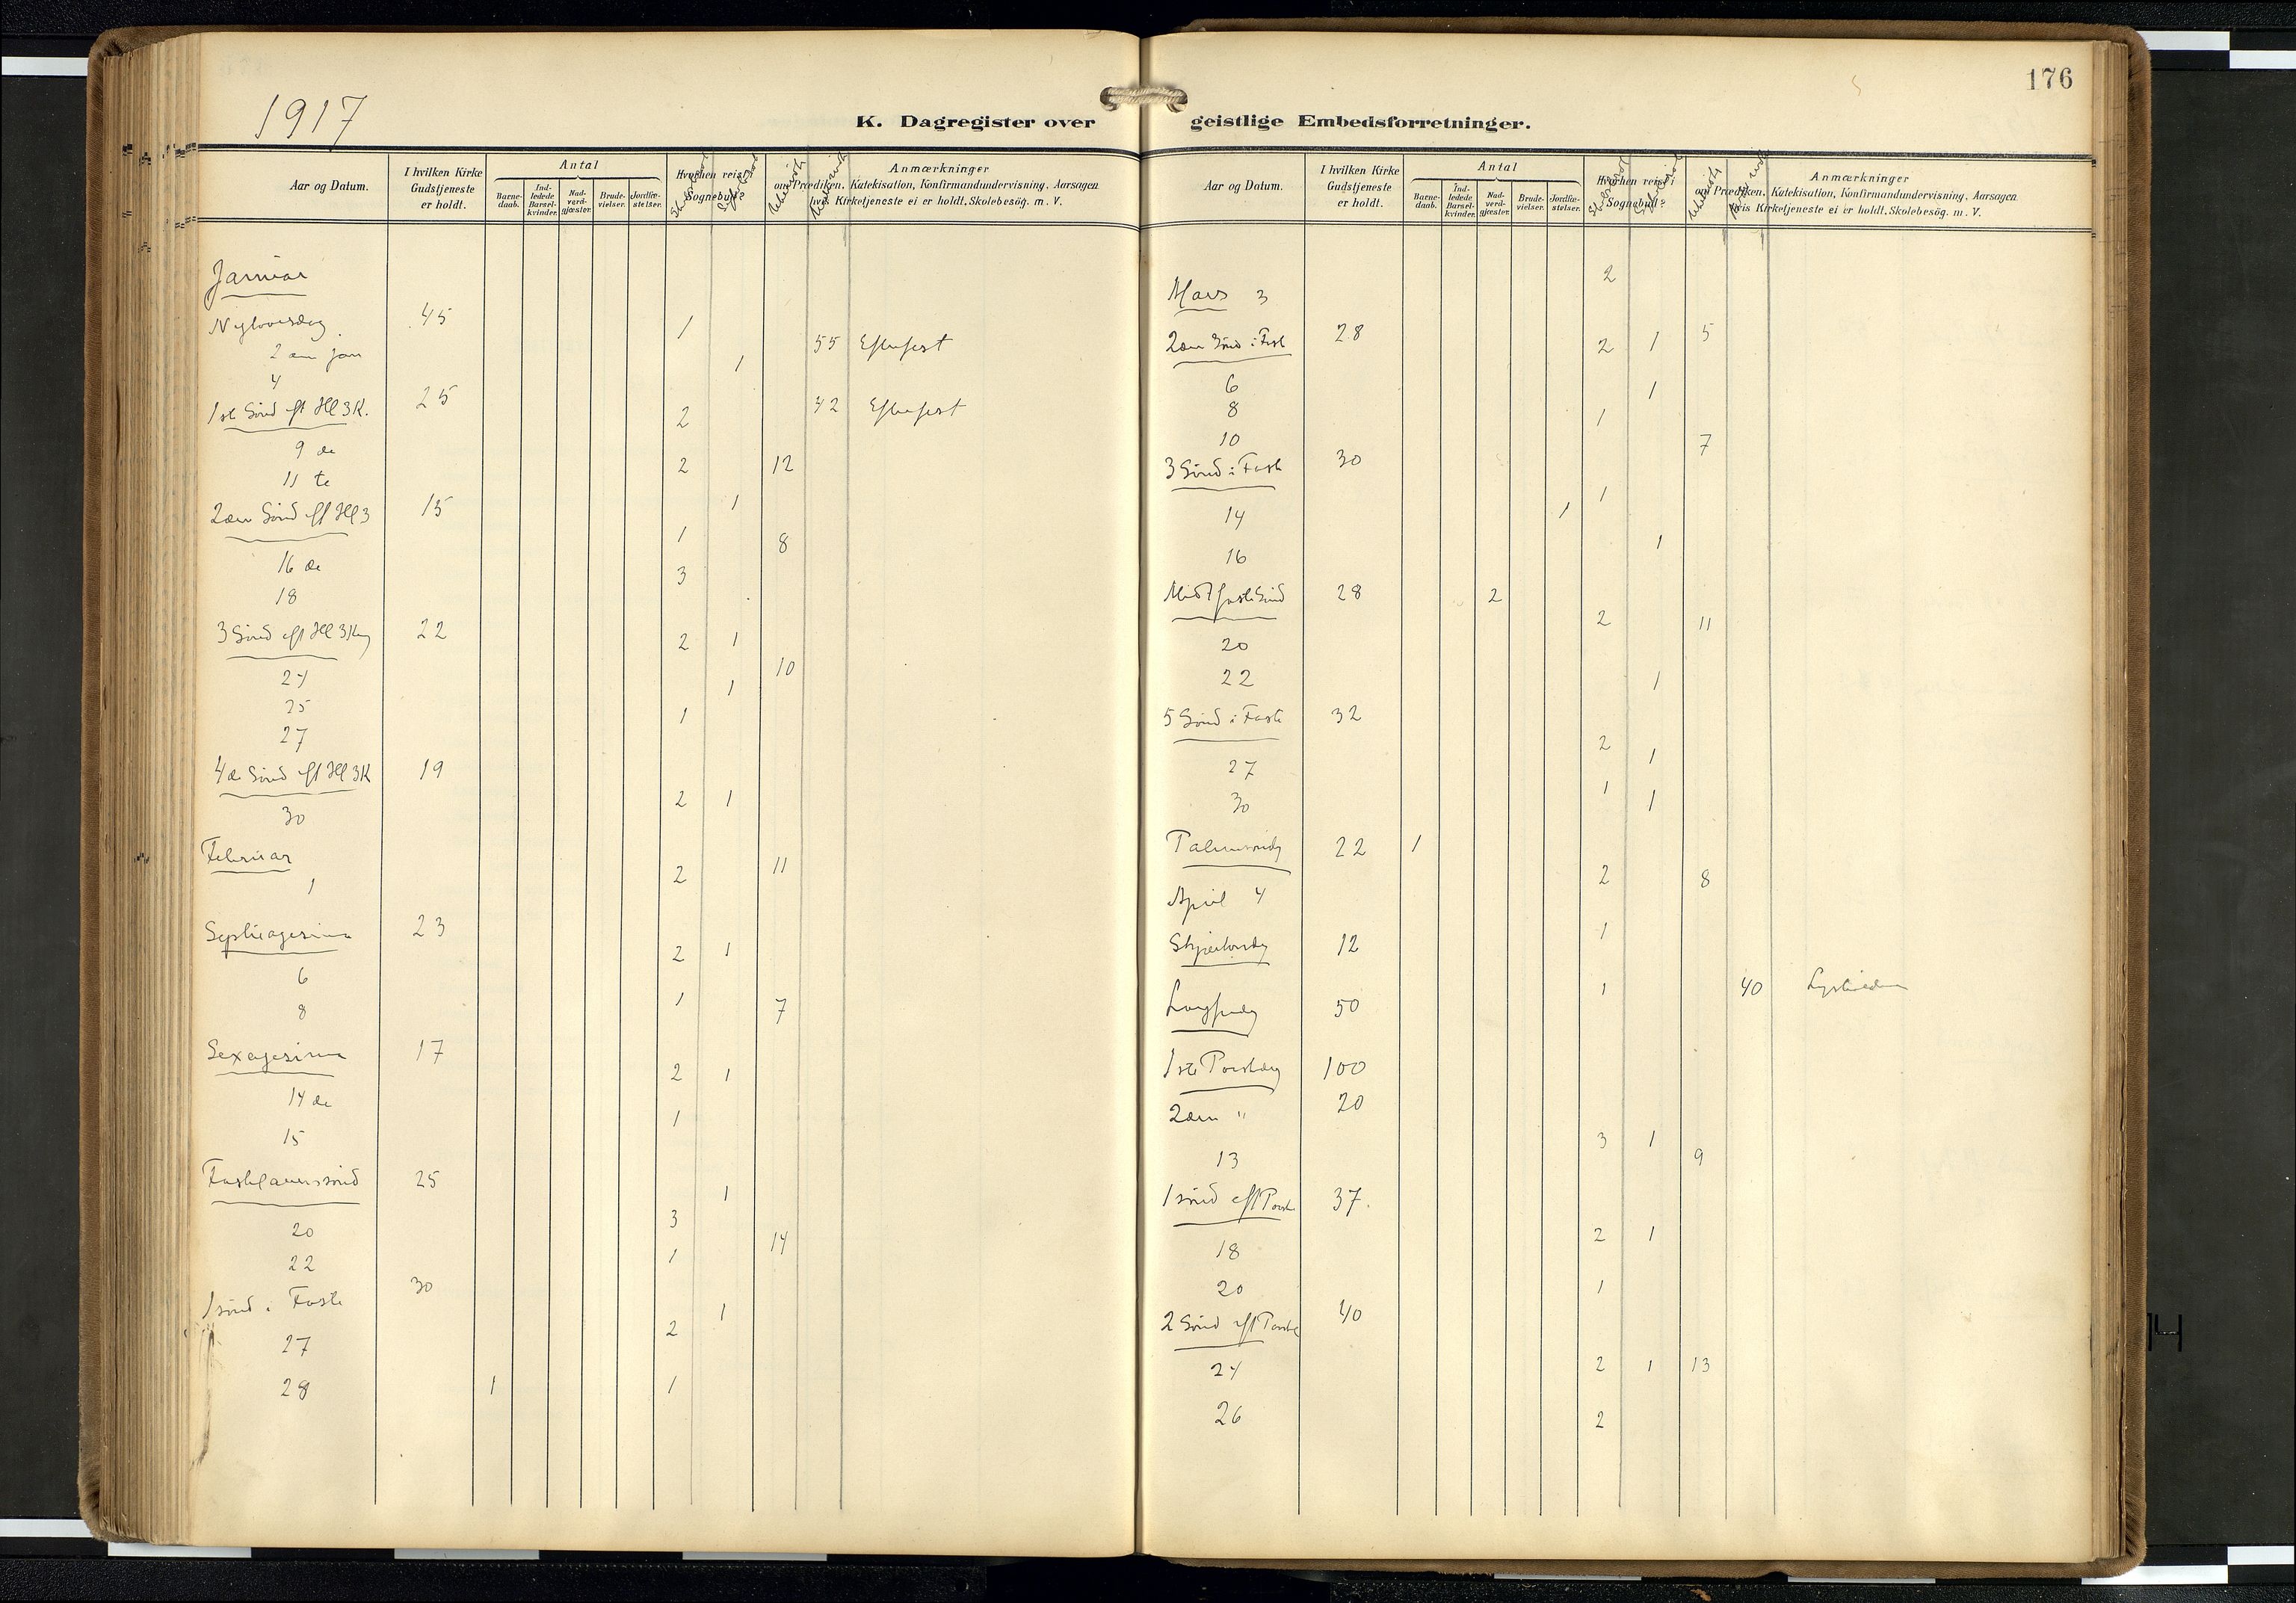 176
1917
K. Dagregister over geistlige Embedsforretninger.
Aar og Datum. I hvilken Kirke Gudstjeneste er holdt. Antal Barne-daab. Ind-ledede Barsel-kvinder. Nad-verd-gjæster. Brude-vielser. Jordfæ-stelser. Hvorhen reist i Sognebud? Anmærkninger om Prædiken, Katekisation, Konfirmandundervisning, Aarsagen hvis Kirketjeneste ei er holdt, Skolebesög. m. V.
Januar
Nytaarsdag 45 1
2 den Jan 1 55 Eftufest
4
1ste Sönd eft Hll 3 K. 25 2 42 Eftufest
9 de 2 12
11 te 1
2den Sönd eft Hll 3 15 1 8
16 de 3
18
3 Sönd eft Hll 3 Kg 22 2 1
24 1 10
25 1
27
4de Sönd eft Hll 3 K 19 2 1
30
Februar 2 11
1
Septuagesima 23 2 1
6 1
8 7
Sexagesima 17 2 1
14 de 1
15
Fastelavenssönd 25 1
20 3 14
22 1
1 sönd i Faste 30 1
27 2
28 1 1
Aar og Datum. I hvilken Kirke Gudstjeneste er holdt. Antal Barne-daab. Ind-ledede Barsel-kvinder. Nad-verd-gjæster. Brude-vielser. Jordfæ-stelser. Hvorhen reist i Sognebud? Anmærkninger om Prædiken, Katekisation, Konfirmandundervisning, Aarsagen hvis Kirketjeneste ei er holdt, Skolebesög. m. V.
Mars 3 2
2den Sönd i Fast 28 2 1 5
6 1
8 1
10 7
3 Sönd i Faste 30 1
14 1
16 1
Midtfaste Sönd 28 2
20 2 11
22 1
5 Sönd i Faste 32 2
27 1
30 1 1
Palmesöndg 22 1
April 4 2 8
Skjærtorsdg 12 1
Langfredg 50 1 40
1ste Paaskedag 100
2den " 20
13 3 1 9
1 sönd eft Paaske 37.
18 2 1
20 1
2 Sönd eft Paaske 40
24 2 1 13
26 2